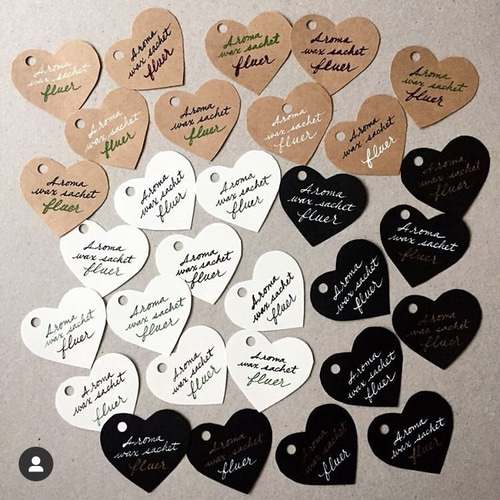 Aroma
wax sachet
fluer
Aroma
wax sachet
fluer
Aroma
wax sachet
fluer
Aroma
wax sachet
fluer
Aroma
wax sachet
fluer
Aroma
wax sachet
fluer
Aroma
wax sachet
fluer
Aroma
wax sachet
fluer
Aroma
wax sachet
fluer
Aroma
wax sachet
fluer
Aroma
wax sachet
fluer
Aroma
wax sachet
fluer
Aroma
wax sachet
fluer
Aroma
wax sachet
fluer
Aroma
wax sachet
fluer
Aroma
wax sachet
fluer
Aroma
wax sachet
fluer
Aroma
wax sachet
fluer
Aroma
wax sachet
fluer
Aroma
wax sachet
fluer
Aroma
wax sachet
fluer
Aroma
wax sachet
fluer
Aroma
wax sachet
fluer
Aroma
wax sachet
fluer
Aroma
wax sachet
fluer
Aroma
wax sachet
fluer
Aroma
wax sachet
fluer
Aroma
wax sachet
fluer
Aroma
wax sachet
fluer
Aroma
wax sachet
fluer